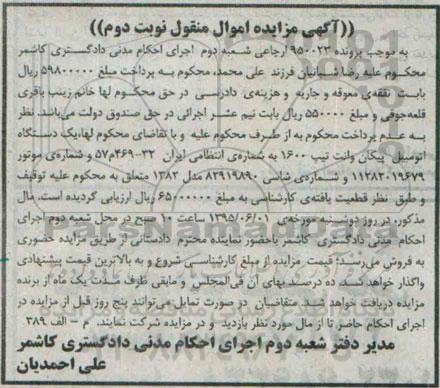 ((آگهی مزایده اموال منقول نوبت دوم))
به موجب پرونده ۹۵۰۰۲۳ ارجاعی شعبه دوم اجرای احکام مدنی دادگستری کاشمر
محکوم علیه رضا شبانیان فرزند علی محمد، محکوم به پرداخت مبلغ ۵۹۸۰۰۰۰۰ ریال
بابت نفقه‌ی معوقه و جاریه و هزینه‌ی دادرسی در حق محکوم لها خانم زینب باقری
قلعه‌جوقی و مبلغ ۵۵۰۰۰۰ ریال بابت نیم عشر اجرائی در حق صندوق دولت می‌باشد. نظر
به عدم پرداخت محکوم به از طرف محکوم علیه و با تقاضای محکوم لها، یک دستگاه
اتومبیل پیکان وانت تیپ ۱۶۰۰ به شماره‌ی انتظامی ایران ۳۲-۴۶۹م۵۷ و شماره‌ی موتور
۱۱۲۸۳۰۱۹۶۷۹ و شماره‌ی شاسی ۸۲۹۱۹۸۹۰ مدل ۱۳۸۲ متعلق به محکوم علیه توقیف
و طبق نظر قطعیت یافته‌ی کارشناسی به مبلغ ۶۵۰۰۰۰۰۰ ریال ارزیابی گردیده است. مال
مذکور، در روز دوشنبه مورخه‌ی ۱۳۹۵/۰۶/۰۱ ساعت ۱۰ صبح در محل شعبه دوم اجرای
احکام مدنی دادگستری کاشمر باحضور نماینده محترم دادستانی از طریق مزایده حضوری
به فروش می‌رسد؛ قیمت مزایده از مبلغ کارشناسی شروع و به بالاترین قیمت پیشنهادی
واگذار خواهد شد. ده درصد بهای آن فی‌المجلس و مابقی ظرف مدت یک ماه از برنده
مزایده دریافت خواهد شد. متقاضیان در صورت تمایل می‌توانند پنج روز قبل از مزایده در
اجرای احکام حاضر تا از مال مورد نظر بازدید و در مزایده شرکت نمایند. م - الف ۳۸۹
مدیر دفتر شعبه دوم اجرای احکام مدنی دادگستری کاشمر
علی احمدیان
ParsNamadData